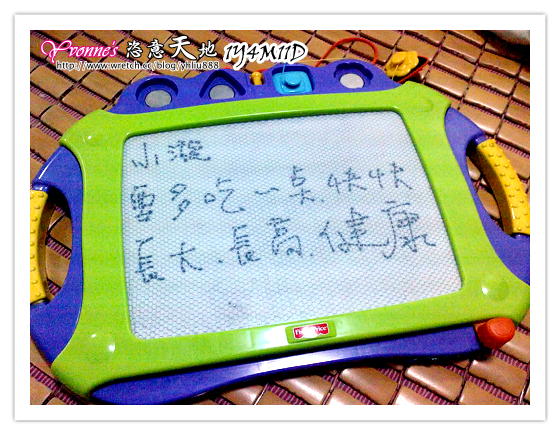 Yvonne's 恣意天地 1Y4M11D
http://www.wretch.cc/blog/yhliu888
小漩
要多吃一点,快快
長大、長高、健康
Fisher-Price